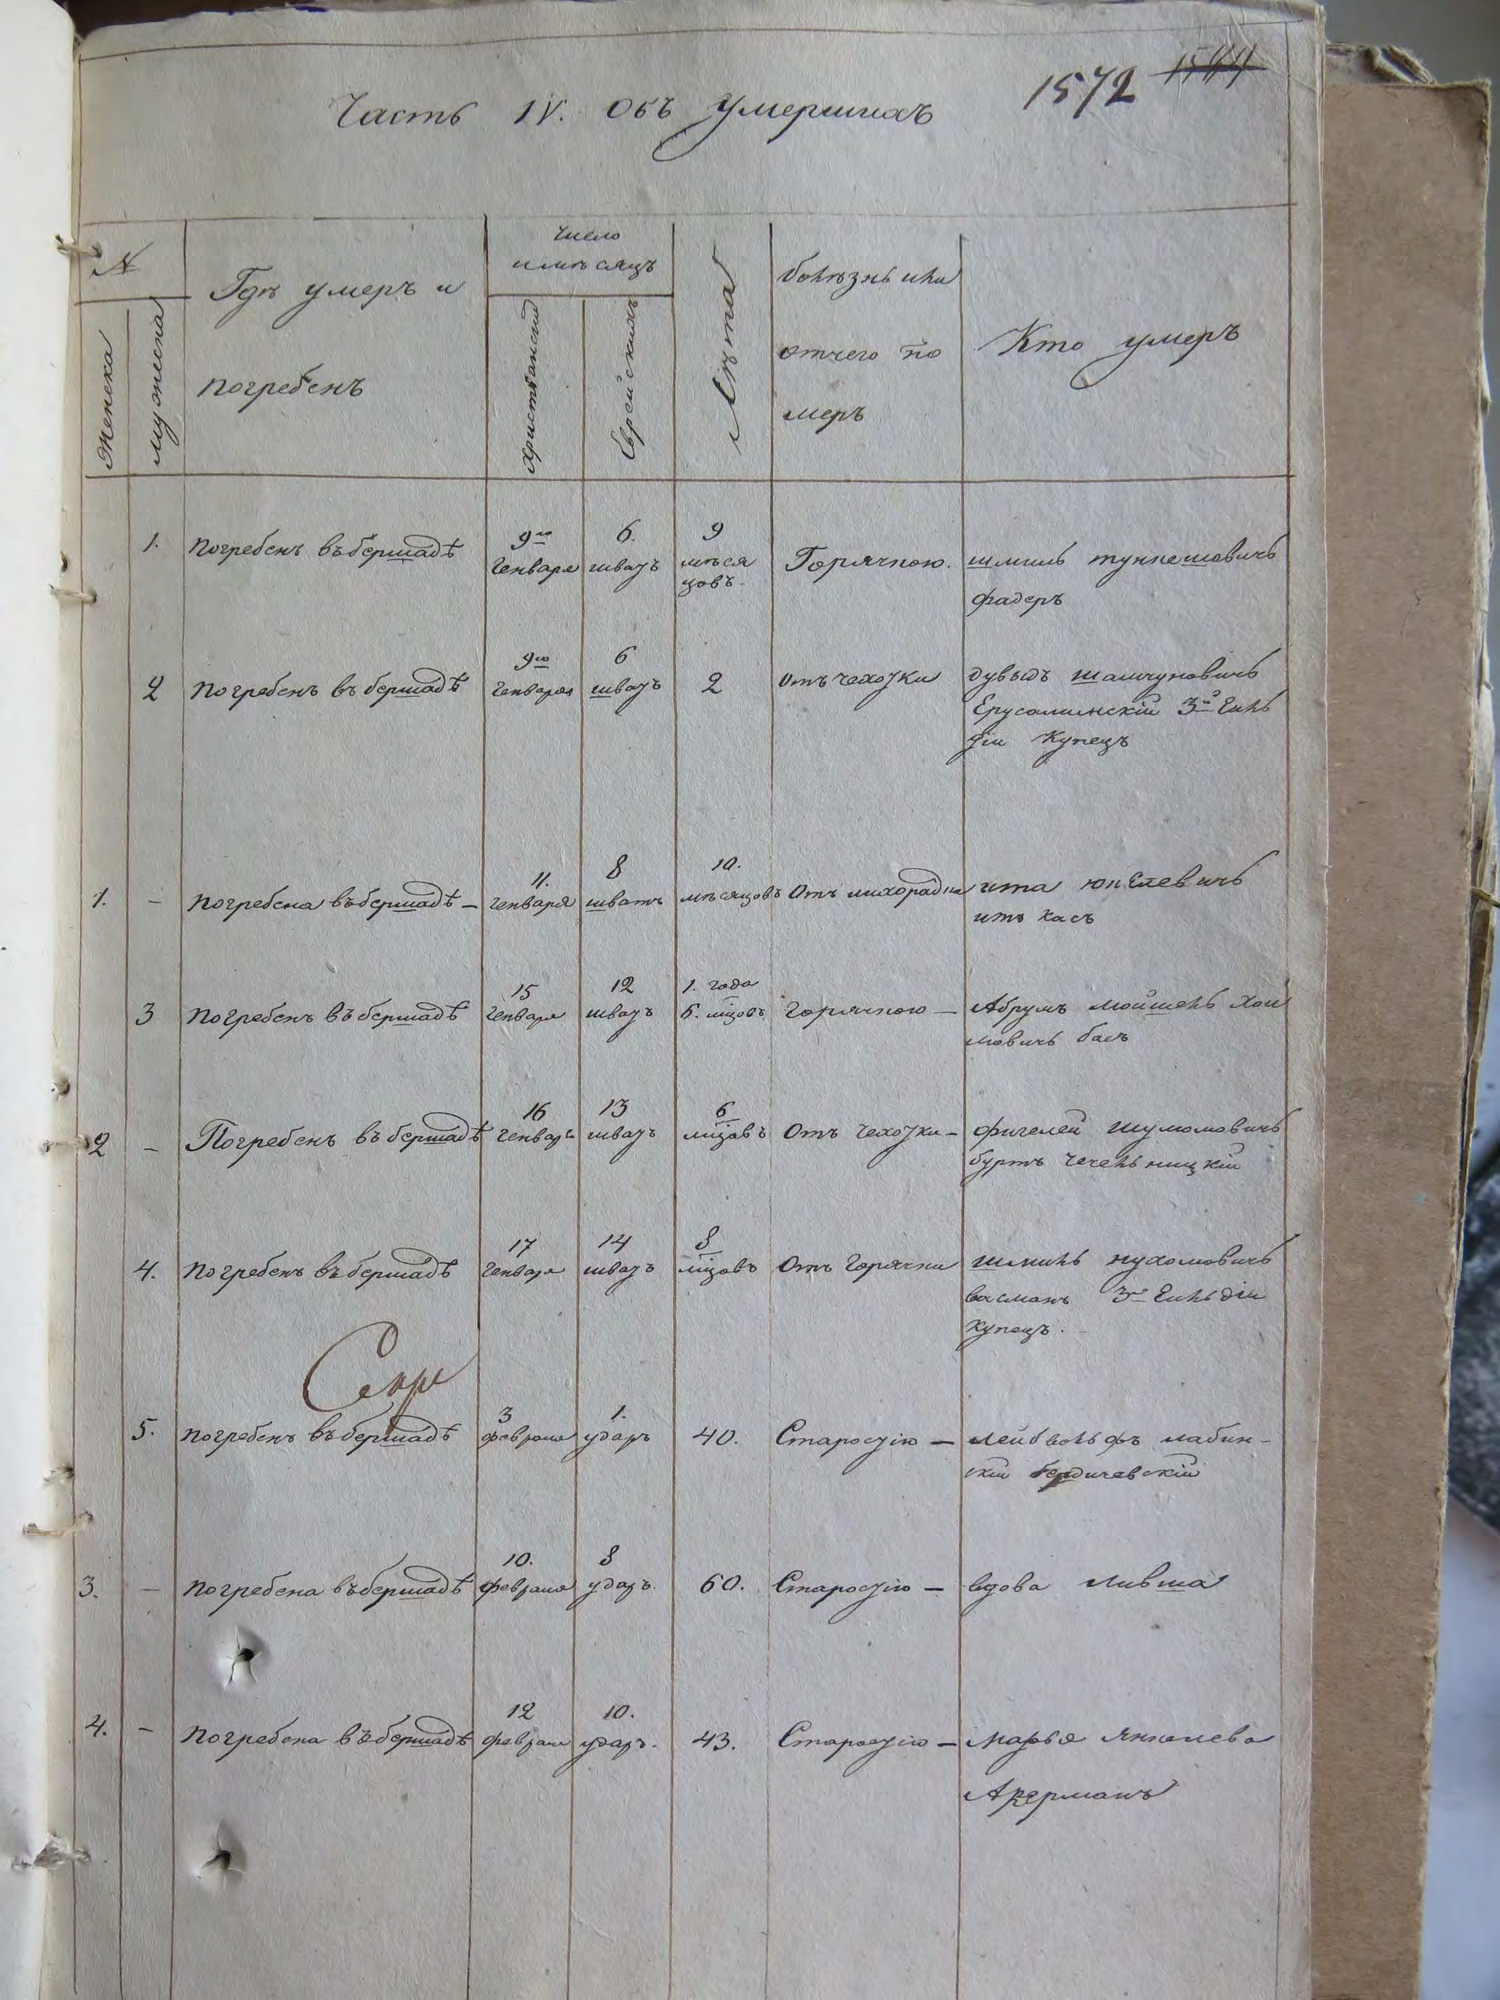 1572 1544
Часть IV. Объ умершихъ
№
Женска
мужеска
Гдѣ умеръ и
погребенъ
Число
и мѣсяцъ
Христiански
Еврейскихъ
Лѣта
болѣзнь или
отчего по
меръ
Кто умеръ
1. погребенъ въ бершадѣ 9го Генваря 6. шватъ 9 мѣся
цовъ. Горячкою. шмиль
фадеръ
2 погребенъ въ бершадѣ 9го Генваря 6 шватъ 2 отъ чехотки дувыдъ
Ерусалимскiй 3й Гиль
дiи Купецъ
1. – погребена въ бершадѣ – 11. Генваря 8 шватъ 10. мѣсяцовъ Отъ лихорадки ита
3 погребенъ въ бершадѣ 15 Генваря 12 шватъ 1. года
6. мцовъ горячкою – Абрумъ мойшель хай
мовичъ басъ
2 – Погребенъ въ бершадѣ 16 Генваря 13 шватъ 6 мцовъ Отъ чехотки – шулюмовичъ
чечельницкiй
4. погребенъ въ бершадѣ 17 Генваря 14 шватъ 8 мцовъ Отъ Горячки шмиль нухомовичъ
васманъ 3й Гильдiи
купецъ.
5. погребенъ въ бершадѣ 3 февраля 1. ударъ 40. Старостiю – лейбвольфъ лабин-
скiй бердичевскiй
3. – погребена въ бершадѣ 10. февраля 8 ударъ. 60. Старостiю – вдова ливша
4. – погребена въ бершадѣ 12 февраля 10. ударъ. 43. Старостiю – марья янкелева
Акерманъ